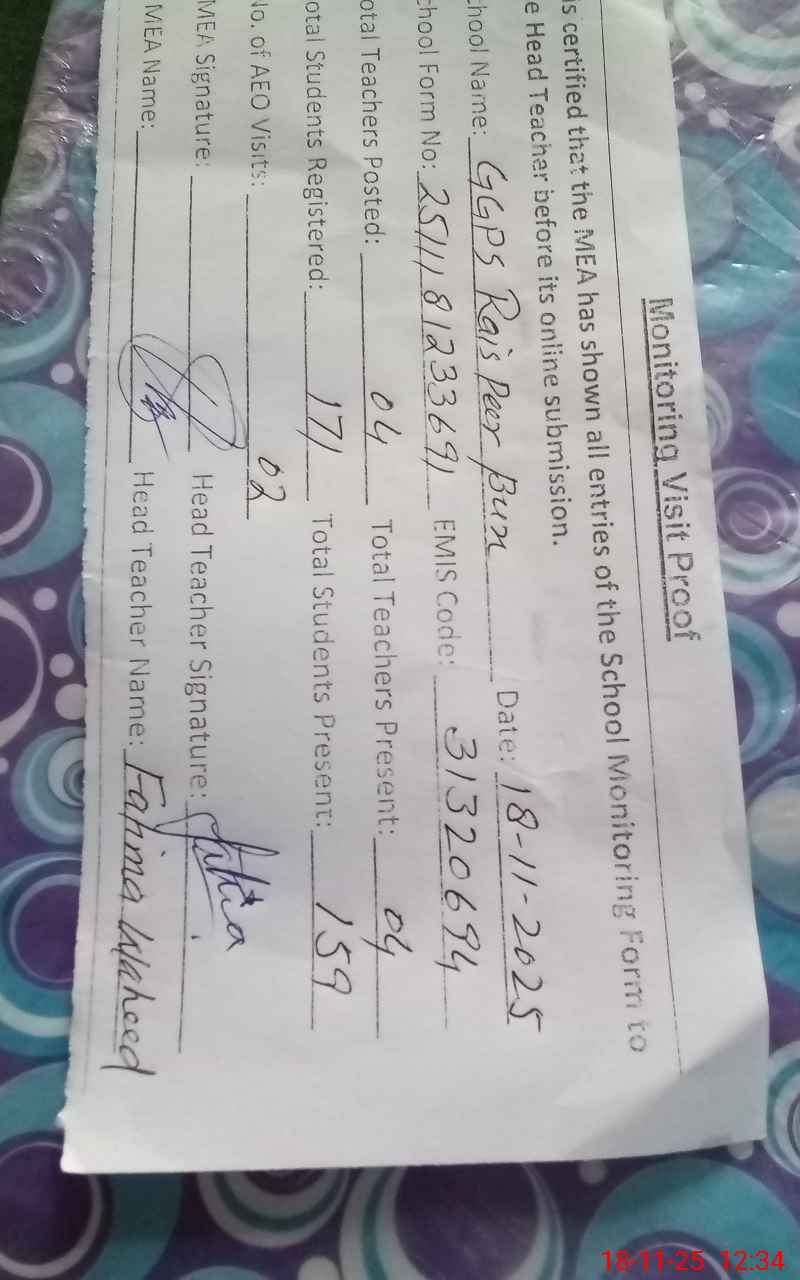 Monitoring Visit Proof
is certified that the MEA has shown all entries of the School Monitoring Form to
e Head Teacher before its online submission.
chool Name: GGPS Rais Peer Bux Date: 18-11-2025
chool Form No: 2511181233691 EMIS Code: 31320694
otal Teachers Posted: 04 Total Teachers Present: 04
otal Students Registered: 171 Total Students Present: 159
No. of AEO Visits: 02
MEA Signature: Head Teacher Signature:
MEA Name: Head Teacher Name: Fahima Waheed
18-11-25 12:34